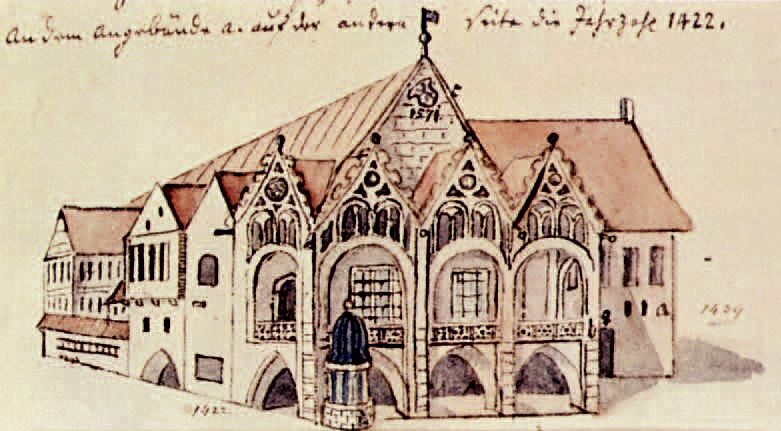 An dem Angebäude a. auf der andern Seite die Jahrzahl 1422.
1571.
1422